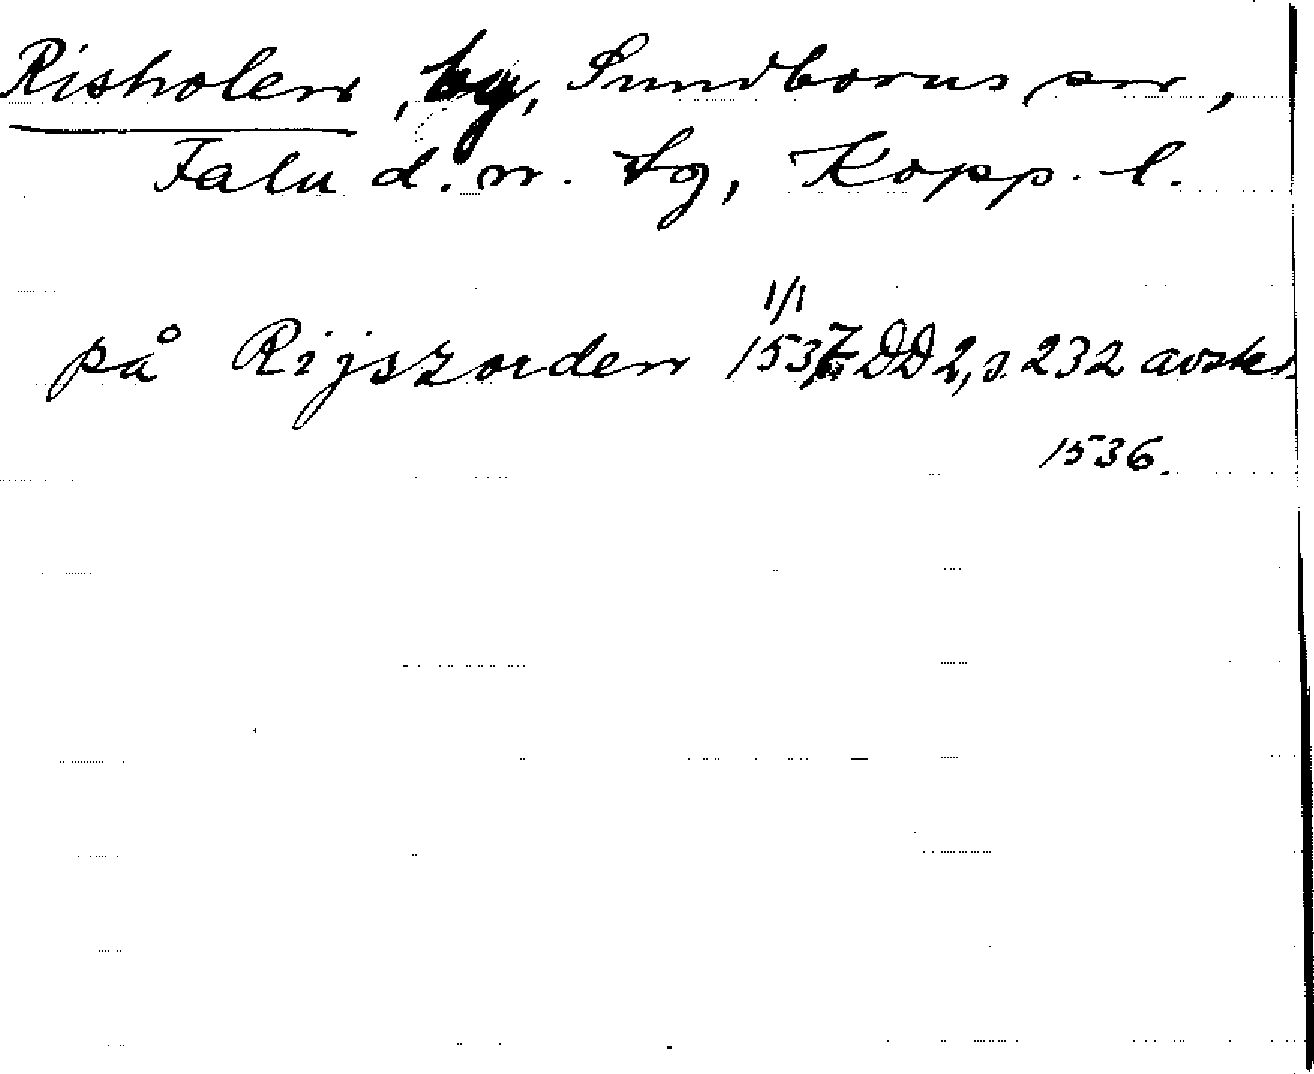 Risholen, by, Sundborns sn,
Falu d. n. tg, Kopp. l.
1/1
på Rijszorden 1537 DD 2, s. 232 avskr.
1536.